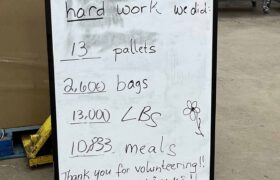 hard work we did:
13 pallets
2,600 bags
13,000 LBS
10,833 meals
Thank you for volunteering!!